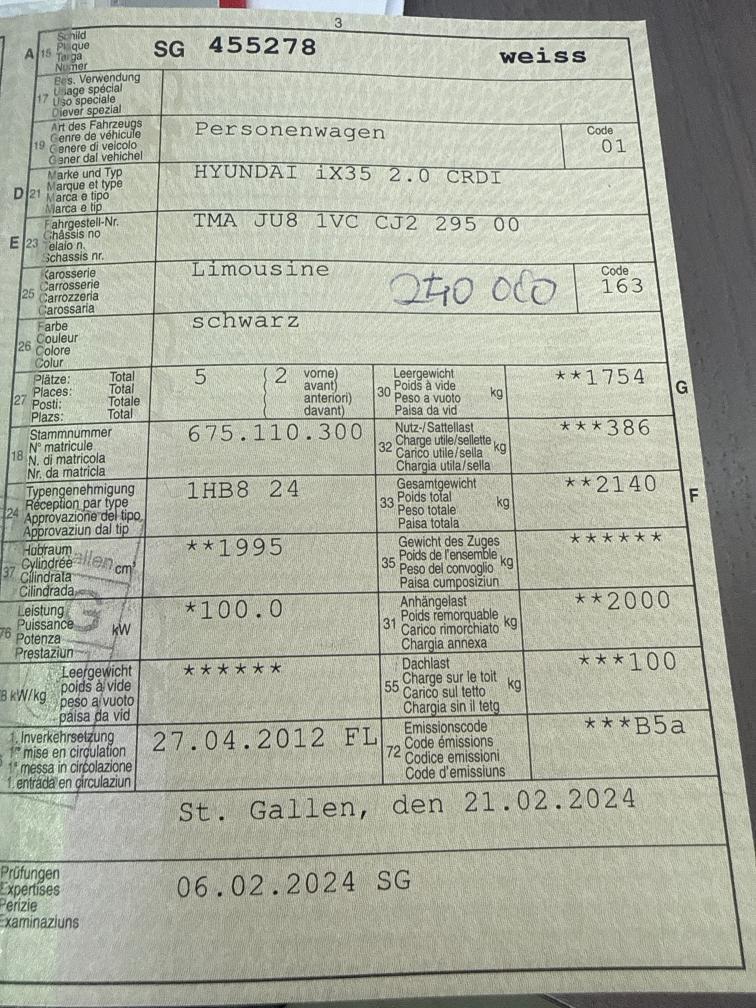 3
A 15 Schild Plaque Targa Numer SG 455278 weiss
17 Bes. Verwendung
Usage spécial
Uso speciale
Diever spezial
19 Art des Fahrzeugs
Genre de véhicule
Genere di veicolo
Gener dal vehichel
Personenwagen
Code
01
D 21 Marke und Typ
Marque et type
Marca e tipo
Marca e tip
HYUNDAI iX35 2.0 CRDI
E 23 Fahrgestell-Nr.
Châssis no
Telaio n.
Schassis nr.
TMA JU8 1VC CJ2 295 00
25 Karosserie
Carrosserie
Carrozzeria
Carossaria
Limousine
240 000
Code
163
26 Farbe
Couleur
Colore
Colur
schwarz
27 Plätze: Total
Places: Total
Posti: Totale
Plazs: Total
5 ( 2 vorne)
avant)
anteriori)
davant)
30 Leergewicht
Poids à vide
Peso a vuoto
Paisa da vid
kg
**1754
G
18 Stammnummer
N° matricule
N. di matricola
Nr. da matricla
675.110.300
32 Nutz-/Sattellast
Charge utile/sellette
Carico utile/sella
Chargia utila/sella
kg
***386
24 Typengenehmigung
Réception par type
Approvazione del tipo
Approvaziun dal tip
1HB8 24
33 Gesamtgewicht
Poids total
Peso totale
Paisa totala
kg
**2140
F
37 Hubraum
Cylindrée
Cilindrata
Cilindrada
cm³
**1995
35 Gewicht des Zuges
Poids de l'ensemble
Peso del convoglio
Paisa cumposiziun
kg
******
76 Leistung
Puissance
Potenza
Prestaziun
kW
*100.0
31 Anhängelast
Poids remorquable
Carico rimorchiato
Chargia annexa
kg
**2000
8 kW/kg Leergewicht
poids à vide
peso a vuoto
paisa da vid
******
55 Dachlast
Charge sur le toit
Carico sul tetto
Chargia sin il tetg
kg
***100
1. Inverkehrsetzung
1re mise en circulation
1a messa in circolazione
1. entrada en circulaziun
27.04.2012 FL
72 Emissionscode
Code émissions
Codice emissioni
Code d'emissiuns
***B5a
St. Gallen, den 21.02.2024
Prüfungen
Expertises
Perizie
Examinaziuns
06.02.2024 SG